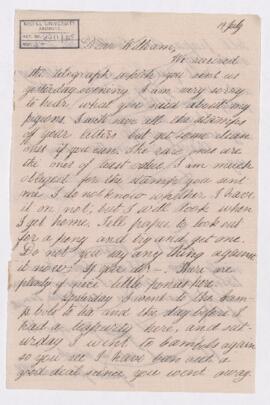 McGILL UNIVERSITY
ARCHIVES
ACC. NO.
REF.
July
Dear William,
We received
the telegraph which you sent us
yesterday evening. I am very sorry
to hear what you said about my
pigeons. I will save all the stamps
of your letters but get some clean
ones if you can. The rare ones are
the ones of least value. I am much
obliged for the stamp you sent
me. I do not know whether I have
it on not, but I will look when
I get home. Tell papa to look out
for a pony and try and get one.
Do not you say any thing against
it now. If you do — There are
plenty of nice little ponies here.
Yesterday I went to the
to tea and the day before I
had a here, and
day I went to again
so you see I have been out a
good deal since you went away.